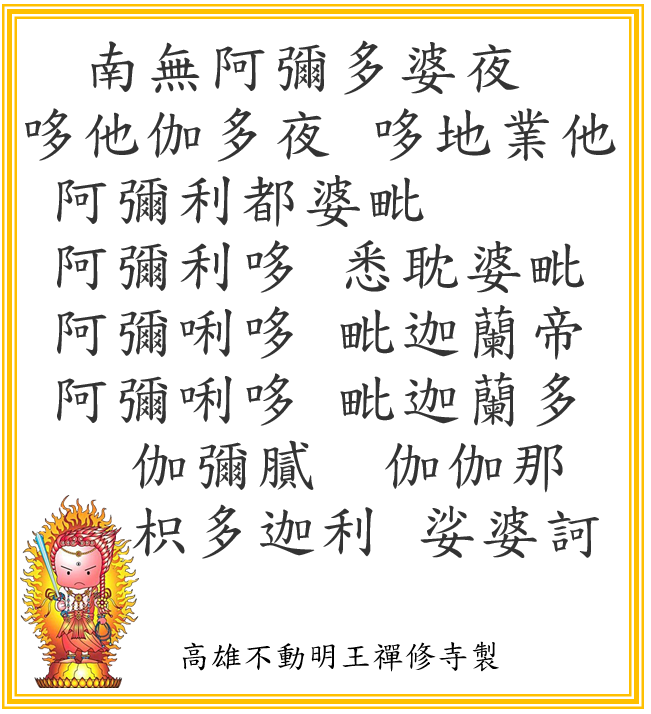 南無阿彌多婆夜
哆他伽多夜 哆地業他
阿彌利都婆毗
阿彌利哆 悉耽婆毗
阿彌唎哆 毗迦蘭帝
阿彌唎哆 毗迦蘭多
伽彌膩 伽伽那
枳多迦利 娑婆訶
高雄不動明王禪修寺製